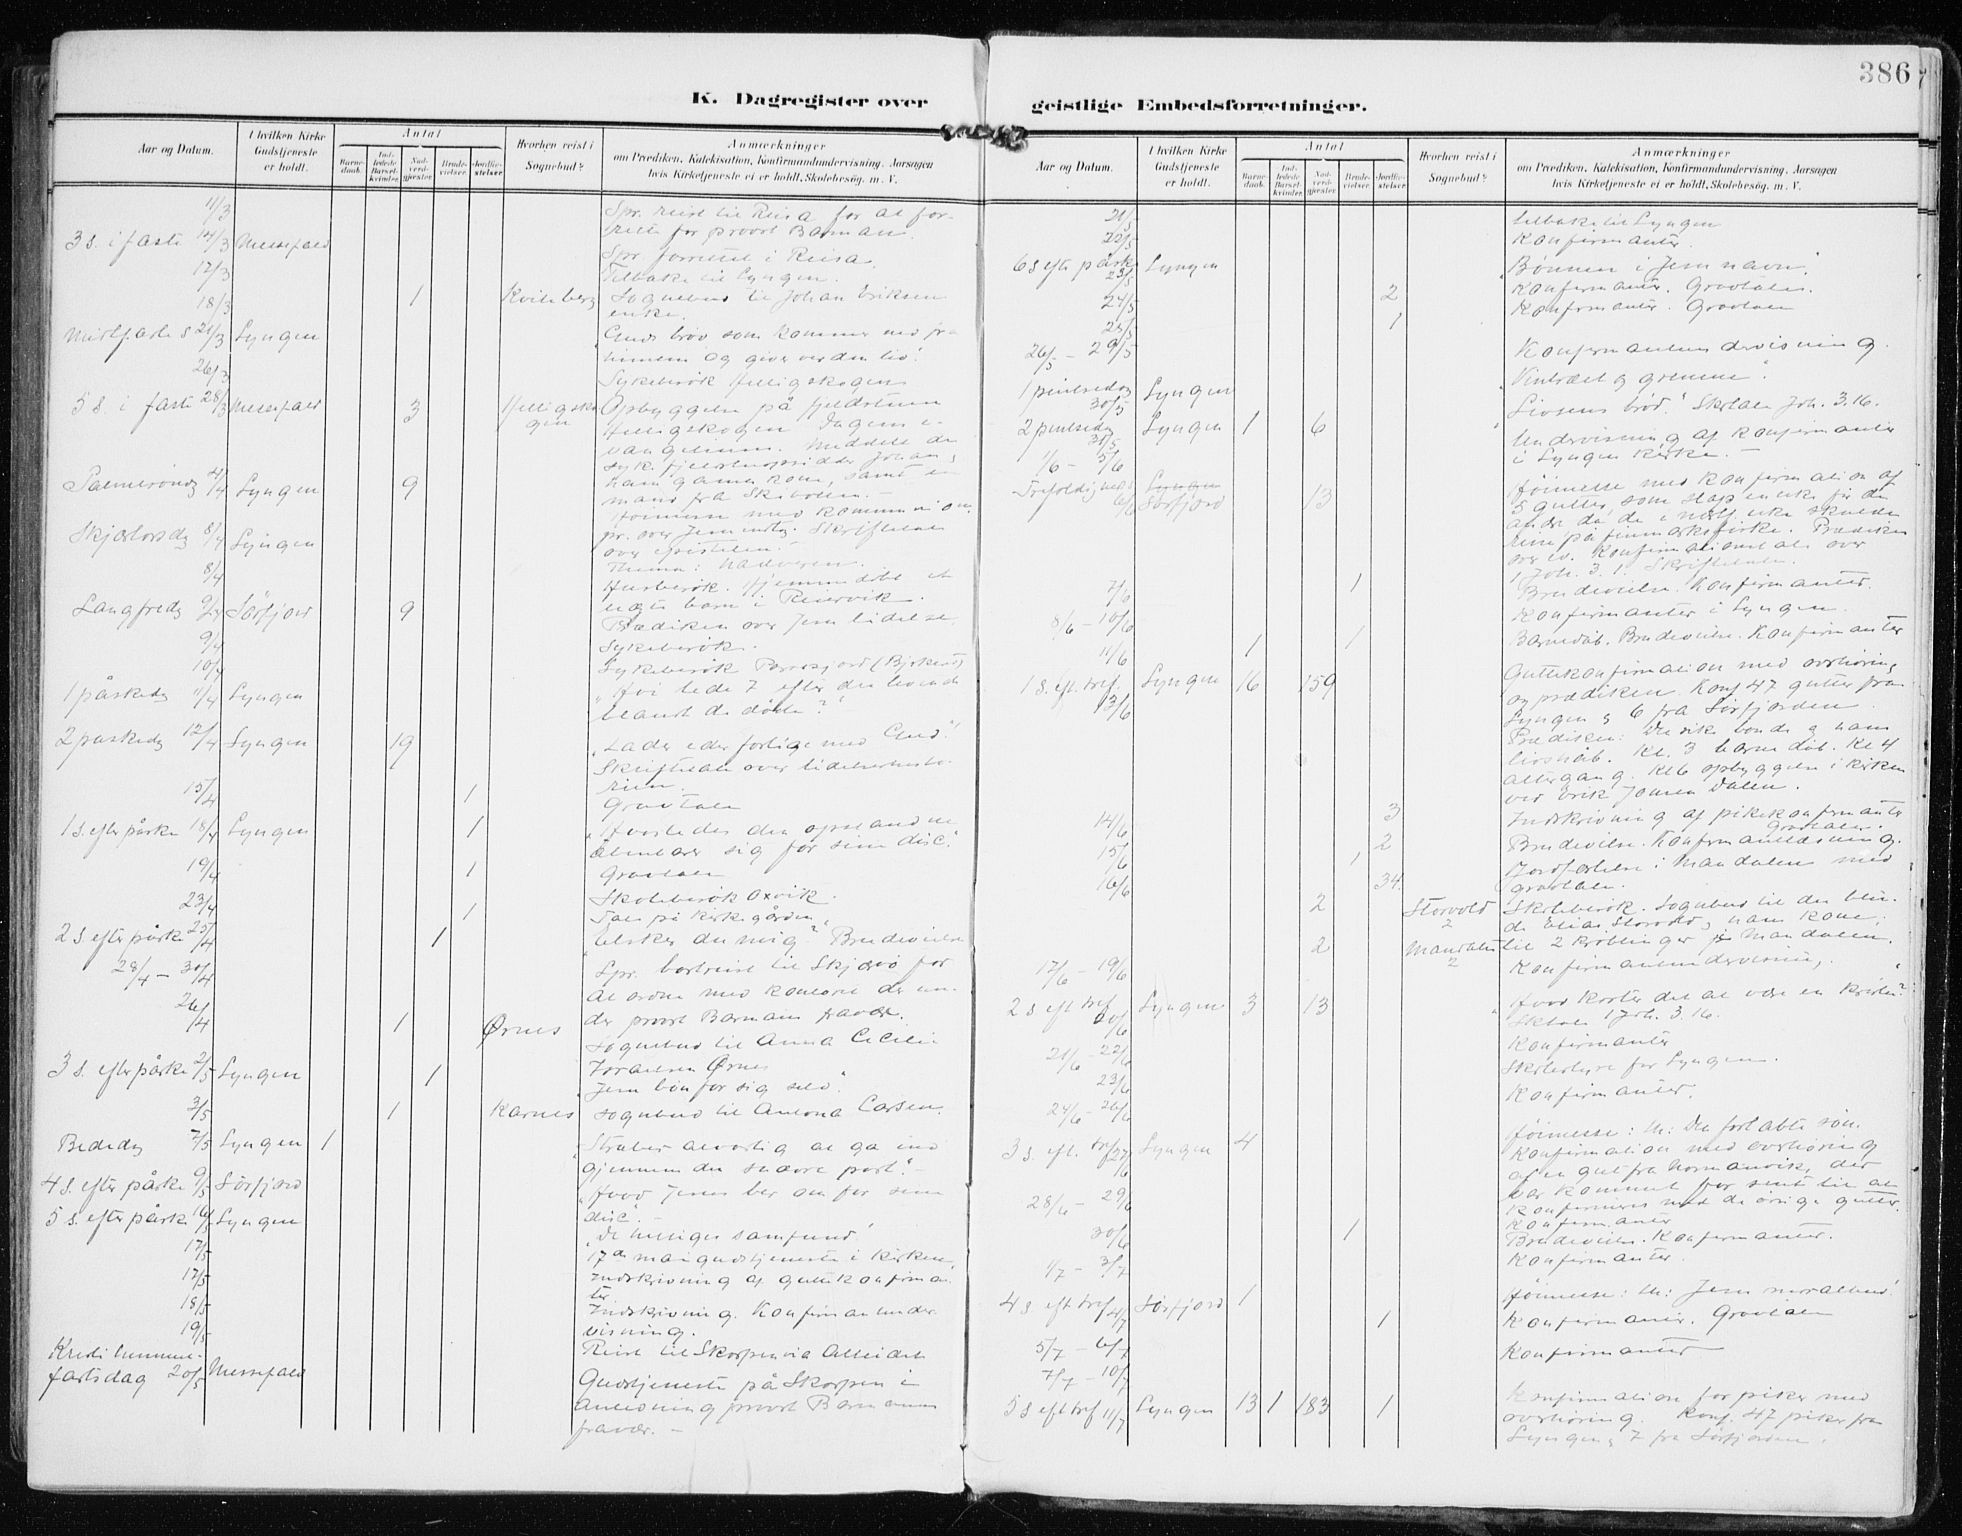 386
K. Dagregister over geistlige Embedsforretninger.
Aar og Datum.
I hvilken Kirke Gudstjeneste er holdt.
Antal
Barnedaab.
Indledede Barselkvinder.
Nadverdgjester.
Brudevielser.
Jordfæstelser.
Hvorhen reist i Sognebud?
Anmærkninger
om Prædiken, Katekisation, Konfirmandundervisning, Aarsagen
hvis Kirketjeneste ei er holdt, Skolebesøg, m. V.
11/3 Spr. reist til Reisa for at for-
3 s. i faste 14/3 Messefald rette for provst Barman.
Spr. forrettet i Reisa.
17/3 Tilbake til Lyngen.
18/3 1 Sognebud til Johan Eriksen
enke.
Midtfaste s 21/3 Lyngen "Guds brød som kommer ned fra
himlen og giver verden liv."
26/3 Sykebesøk Helligskogen
5 s. i faste 28/3 Messefald 3 Helligsko Opbyggelse på fjeldstuen
gen Helligskogen. Dagens e-
vangelium. Meddelt de
Palmesøndag 4/4 Lyngen 9
mand fra Skibotten. -
Skjærtorsdag 8/4 Lyngen
over epistelen. -
8/4 Thema: Nadveren.
Husbesøk. Hjemmedøbt et
Langfredag 9/4 Sørfjord 9
Prædiken over Jesu lidelse
9/4 Sykebesøk.
10/4 Sykebesøk
1 påskedag 11/4 Lyngen "Hvi lede I efter den levende
blandt de døde?"
2 påskedag 12/4 Lyngen 19 "Lader eder forlige med Gud."
Skriftetale over lidelseshisto-
rien.
15/4 1 Gravtale
1 s. efter påske 18/4 Lyngen 1 "Hvorledes den opstandne
åbenbarer sig for sine disc."
19/4 1 Gravtale
23/4 Skolebesøk Oxvik.
1 Tale på kirkegården
2 s. efter påske 25/4 1 "Elsker du mig?" Brudevielse
28/4 - 30/4 Spr. bortreist til Skjærvø for
at ordne med kontoret der un-
26/4 1 Ørnes der provst Barmans fravær.
Sognebud til Anna Cecilie
3 s. efter påske 2/5 Lyngen 1 Ørnes
"Jesu bøn for sig selv."
3/5 1 Karnes Sognebud til Antona Larsen.
Bededag 7/5 Lyngen 1 "Stræber alvorlig at gå ind
gjennem den snævre port." -
4 s. efter påske 9/5 Sørfjord "Hvad Jesus ber om for sine
disc". -
5 s. efter påske 16/5 Lyngen "De helliges samfund."
17/5 17de mai gudstjeneste i kirken.
17/5 Indskrivning af guttekonfirman-
ter.
18/5 Indskrivning. Konfirmantunder-
19/5 visning.
Kristi himmel-
fartsdag 20/5 Messefald Reist til Skorpen via Alteidet
Gudstjeneste på Skorpen i
anledning provst Barmans
fravær. -
Aar og Datum.
I hvilken Kirke Gudstjeneste er holdt.
Antal
Barnedaab.
Indledede Barselkvinder.
Nadverdgjester.
Brudevielser.
Jordfæstelser.
Hvorhen reist i Sognebud?
Anmærkninger
om Prædiken, Katekisation, Konfirmandundervisning, Aarsagen
hvis Kirketjeneste ei er holdt, Skolebesøg, m. V.
21/5 tilbake til Lyngen
22/5 Konfirmanter.
6 s eft påsk 23/5 Lyngen "Bønnen i Jesu navn".
24/5 2 Konfirmanter. Gravtaler.
25/5 1 Konfirmanter. Gravtale
26/5 - 29/5 Konfirmantundervisning.
1 pinsedag 30/5 Lyngen "Vintræet og grenene".
2 pinsedag 31/5 Lyngen 1 6 "Livsens brød." Skrtale Joh. 3.16.
1/6 - 5/6 Undervisning af konfirmanter
i Lyngen kirke. -
Trefoldighedss 6/6 Lyngen Sørfjord 13 Høimesse med konfirmation af
5 gutter, som slap en uke før de
andre da de i næste uke skulde
reise på finmarksfiske. Prædiken
over ev. Konfirmationstale over
1 Joh. 3. 1. Skriftetale.
7/6 1 Brudevielse. Konfirmanter.
8/6 - 10/6 Konfirmanter i Lyngen.
11/6 1 1 Barnedåb. Brudevielse. Konfirmanter
1 s. eft. tref. 13/6 Lyngen 16 159 Guttekonfirmation med overhøring
og prædiken. Konf. 47 gutter fra
Lyngen og 6 fra Sørfjorden.
Prædiken: Den rike bonde og hans
livshåb. Kl. 3 barnedåb. Kl 4
altergang. Kl 6 opbyggelse i kirken
ved Erik Johnsen Dalen.
14/6 3 Indskrivning af pikekonfirmanter
Gravtaler.
15/6 2 Brudevielse. Konfirmantlæsning.
16/6 1 34 Jordfæstelse i Mandalen med
gravtale.
2 Storvold 2 Skolebesøk. Sognebud til den blin-
de Elias Storvold og hans kone;
2 Mandalen 2 til 2 krøblinger på Mandalen.
17/6 - 19/6 Konfirmantundervisning.
2 s eft tref 20/6 Lyngen 3 13 "Hvad koster det at være en kristen?"
Sktale 1 Joh. 3.16.
21/6 - 22/6 Konfirmanter
23/6 Skolestyre for Lyngen.
24/6 - 26/6 Konfirmanter.
3 s. eft. tref 27/6 Lyngen 4 Høimesse: Th: Den fortabte søn.
Konfirmation med overhøring
af en gut fra Hormansvik, der
var kommet for sent til at
28/6 - 29/6 konfirmeres med de øvrige gutter.
Konfirmanter
30/6 1 Brudevielse. Konfirmanter.
1/7 - 3/7 Konfirmanter.
4 s eft tref 4/7 Sørfjord 1 Høimesse: Th:
5/7 - 6/7 1 Konfirmanter. Gravtale
7/7 - 10/7 Konfirmanter
5 s eft tref 11/7 Lyngen 13 1 183 1 Konfirmation for piker med
overhøring. Konf. 47 piker fra
Lyngen og 7 fra Sørfjorden.